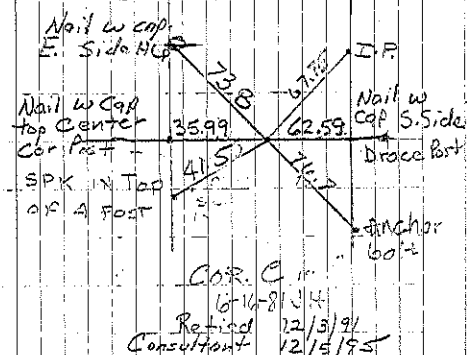 Nail w cap.
E. Side H
I.P.
73.8
Nail w Cap
top Center
Cor Post
35.99
62.59
Nail w
Cap S. Side
Brace Post
SPK IN Top
OF A Post
Anchor
bolt
COR. C
6-16-81
Retied 12/3/91
Consultant 12/15/95